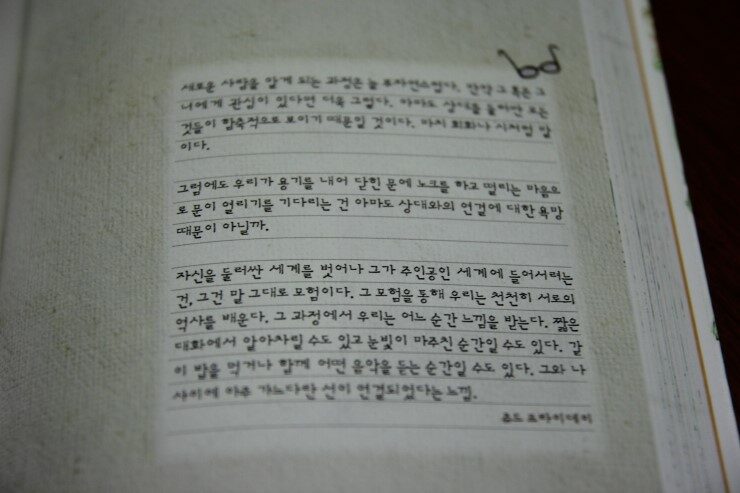 새로운 사람을 알게 되는 과정은 늘 부자연스럽다. 만약 그 혹은 그
녀에게 관심이 있다면 더욱 그렇다. 아마도 상대를 둘러싼 모든
것들이 함축적으로 보이기 때문일 것이다. 마치 회화나 시처럼 말
이다.
그럼에도 우리가 용기를 내어 닫힌 문에 노크를 하고 떨리는 마음으
로 문이 열리기를 기다리는 건 아마도 상대와의 연결에 대한 욕망
때문이 아닐까.
자신을 둘러싼 세계를 벗어나 그가 주인공인 세계에 들어서려는
건, 그건 말 그대로 모험이다. 그 모험을 통해 우리는 천천히 서로의
역사를 배운다. 그 과정에서 우리는 어느 순간 느낌을 받는다. 짧은
대화에서 알아차릴 수도 있고 눈빛이 마주친 순간일 수도 있다. 같
이 밥을 먹거나 함께 어떤 음악을 듣는 순간일 수도 있다. 그와 나
사이에 아주 가느다란 선이 연결되었다는 느낌.
프라이데이